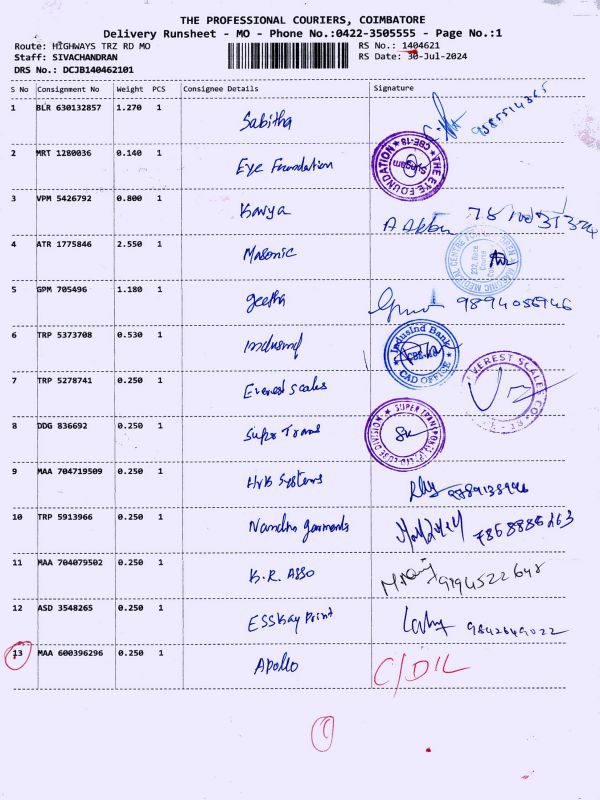 THE PROFESSIONAL COURIERS, COIMBATORE
Delivery Runsheet - MO - Phone No.:0422-3505555 - Page No.:1
Route: HIGHWAYS TRZ RD MO RS No.: 1404621
Staff: SIVACHANDRAN RS Date: 30-Jul-2024
DRS No.: DCJB140462101
S No Consignment No Weight PCS Consignee Details Signature
1 BLR 630132857 1.270 1 Sabitha
2 MRT 1280036 0.140 1 Eye Foundation THE EYE FOUNDATION CBE-18 Sungam
3 VPM 5426792 0.800 1 Kavya
4 ATR 1775846 2.550 1 Masonic
5 GPM 705496 1.180 1 geetha 9894056946
6 TRP 5373708 0.530 1 Indusind IndusInd Bank CAD OFFICE
7 TRP 5278741 0.250 1 Everest Scales EVEREST SCALES CO
8 DDG 836692 0.250 1 Super Trans SUPER TRANSPORTS DIVISION
9 MAA 704719509 0.250 1 HVB Systems
10 TRP 5913966 0.250 1 Nandhu garments
11 MAA 704079502 0.250 1 K.R. Asso
12 ASD 3548265 0.250 1 ESSKay Print 9842649022
13 MAA 600396296 0.250 1 Apollo C/DIL
1